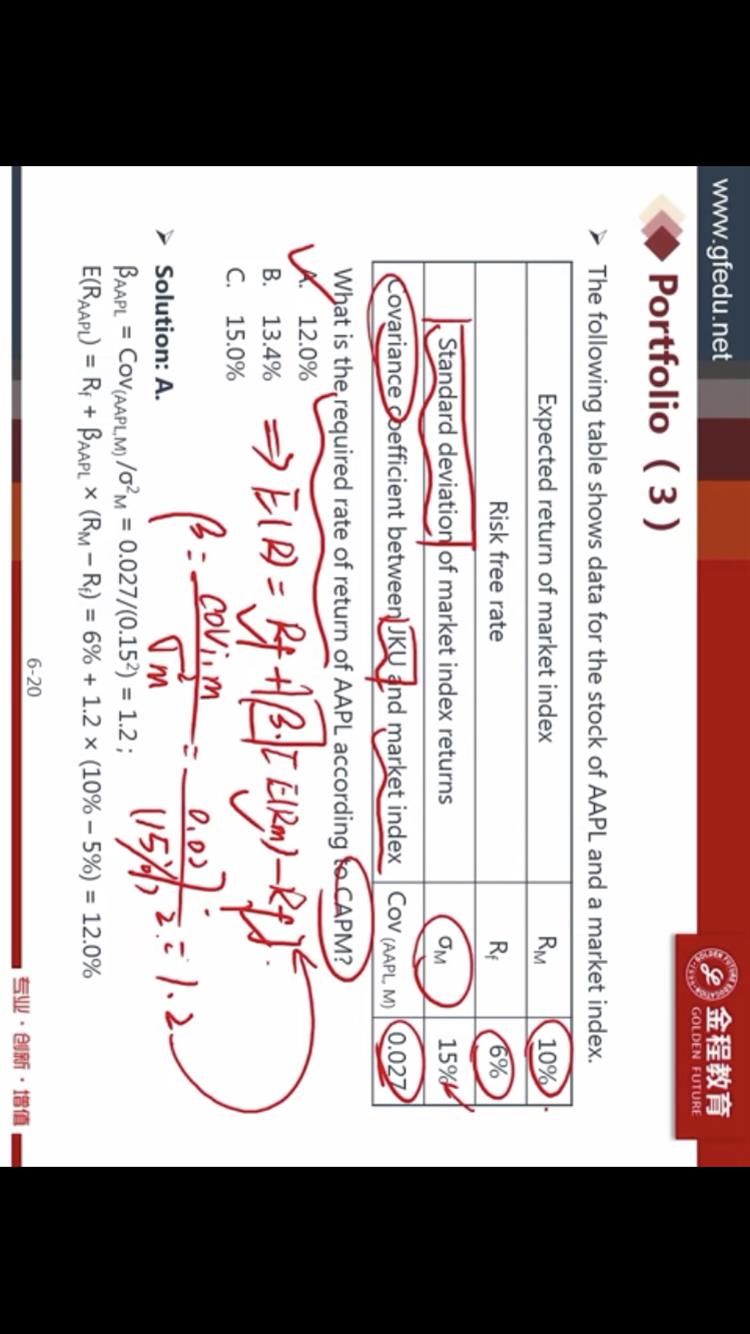 www.gfedu.net
金程教育
GOLDEN FUTURE
GOLDEN FUTURE EDUCATION
Portfolio（3）
➢ The following table shows data for the stock of AAPL and a market index.
Expected return of market index R_M 10%
Risk free rate R_f 6%
Standard deviation of market index returns σ_M 15%
Covariance coefficient between JKU and market index Cov (AAPL, M) 0.027
What is the required rate of return of AAPL according to CAPM?
A. 12.0%
B. 13.4%
C. 15.0%
⇒ E(R) = Rf + β·[E(Rm) − Rf].
β = cov i,m / σ²m = 0.027 / (15%)² = 1.2
➢ Solution: A.
β_AAPL = Cov_(AAPL,M) /σ²_M = 0.027/(0.15²) = 1.2 ;
E(R_AAPL) = R_f + β_AAPL × (R_M − R_f) = 6% + 1.2 × (10% – 5%) = 12.0%
6-20
专业·创新·增值